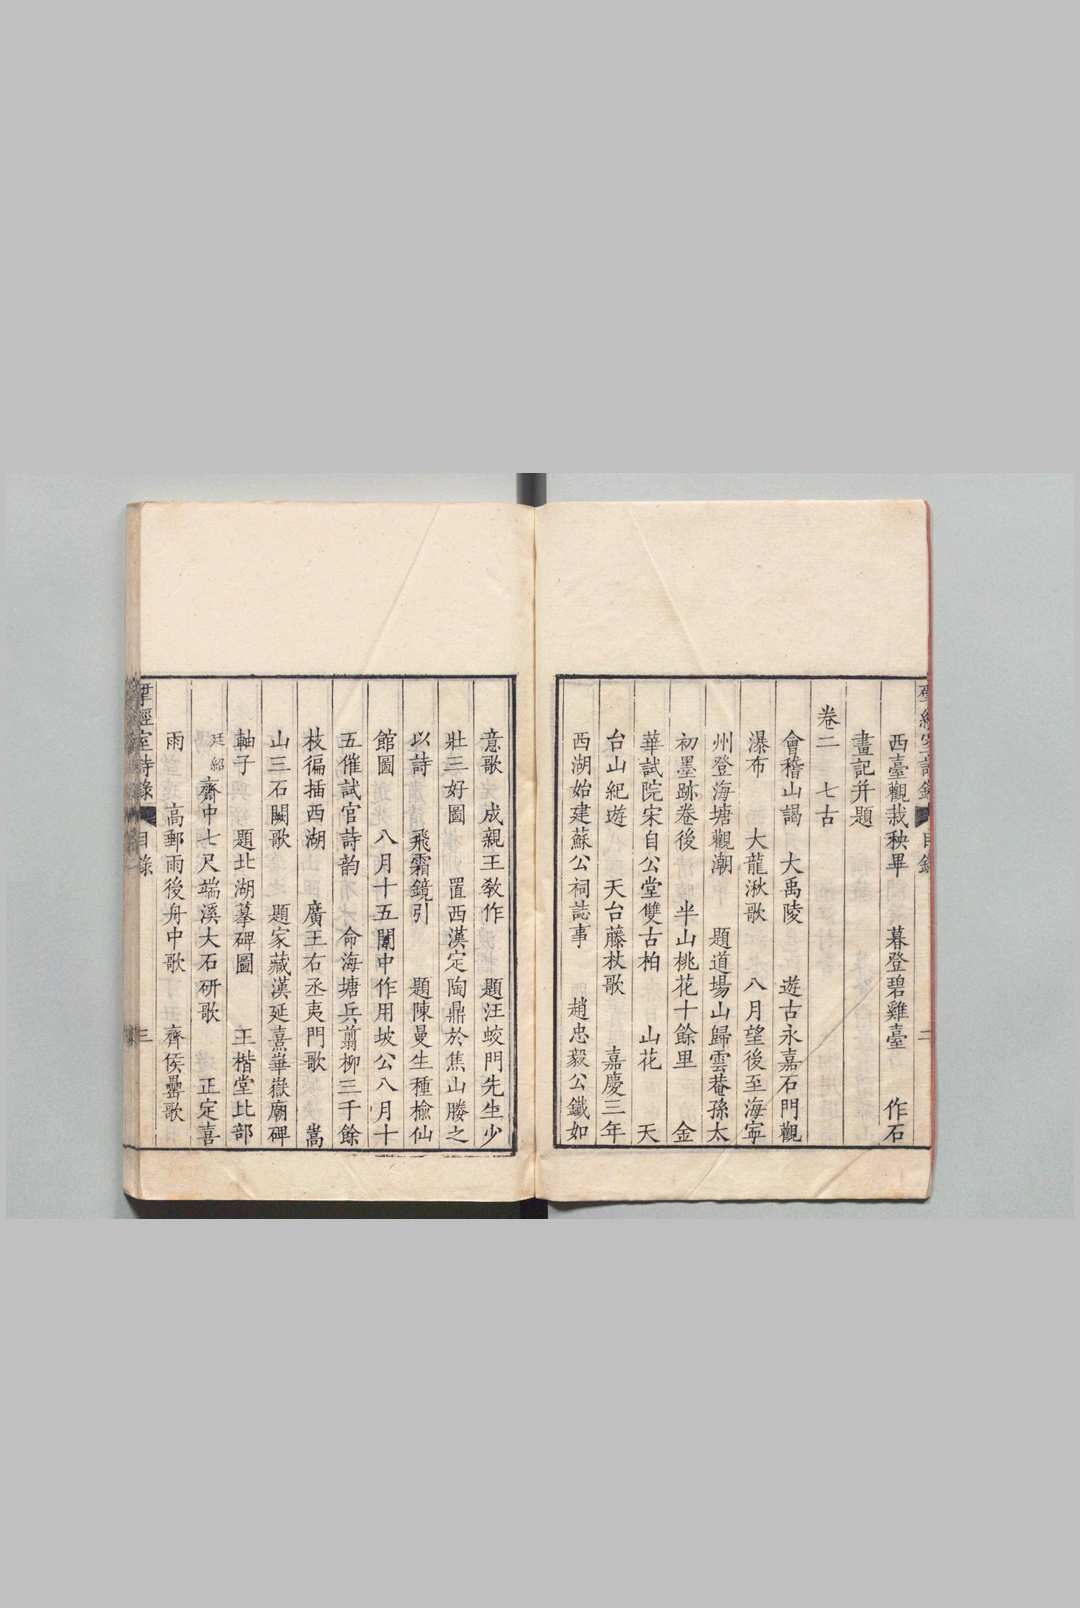 西臺觀栽秧畢　暮登碧雞臺　作石
畫記并題
卷二　七古
會稽山謁　大禹陵　遊古永嘉石門觀
瀑布　大龍湫歌　八月望後至海寧
州登海塘觀潮　題道場山歸雲菴孫太
初墨跡卷後　半山桃花十餘里　金
華試院宋自公堂雙古柏　山花　天
台山紀遊　天台藤杖歌　嘉慶三年
西湖始建蘇公祠誌事　趙忠毅公鐵如
意歌　成親王敎作　題汪蛟門先生少
壯三好圖　置西漢定陶鼎於焦山媵之
以詩　飛霜鏡引　題陳曼生種榆仙
館圖　八月十五闈中作用坡公八月十
五催試官詩韵　命海塘兵翦柳三千餘
枝徧插西湖　廣王右丞夷門歌　嵩
山三石闕歌　題家藏漢延熹華嶽廟碑
軸子　題北湖摹碑圖　王楷堂比部
廷紹　齊中七尺端溪大石硏歌　正定喜
雨　高郵雨後舟中歌　齊侯罍歌
揅經室詩錄　目錄　三